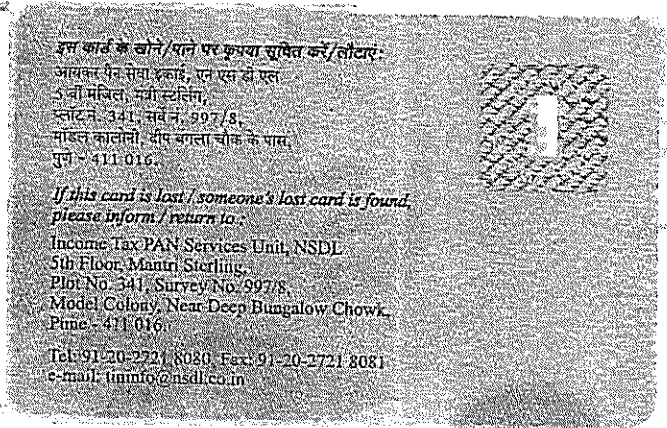 इस कार्ड के खोने/पाने पर कृपया सूचित करें/लौटाएं:
आयकर पैन सेवा इकाई, एन एस डी एल
5 वीं मंजिल, मंत्री स्टर्लिंग,
प्लाट नं. 341, सर्वे नं. 997/8,
माडल कालोनी, दीप बंगला चौक के पास,
पुणे - 411 016.
If this card is lost / someone's lost card is found,
please inform / return to :
Income Tax PAN Services Unit, NSDL
5th Floor, Mantri Sterling,
Plot No. 341, Survey No. 997/8,
Model Colony, Near Deep Bungalow Chowk,
Pune - 411 016.
Tel: 91-20-2721 8080, Fax: 91-20-2721 8081
e-mail: tininfo@nsdl.co.in